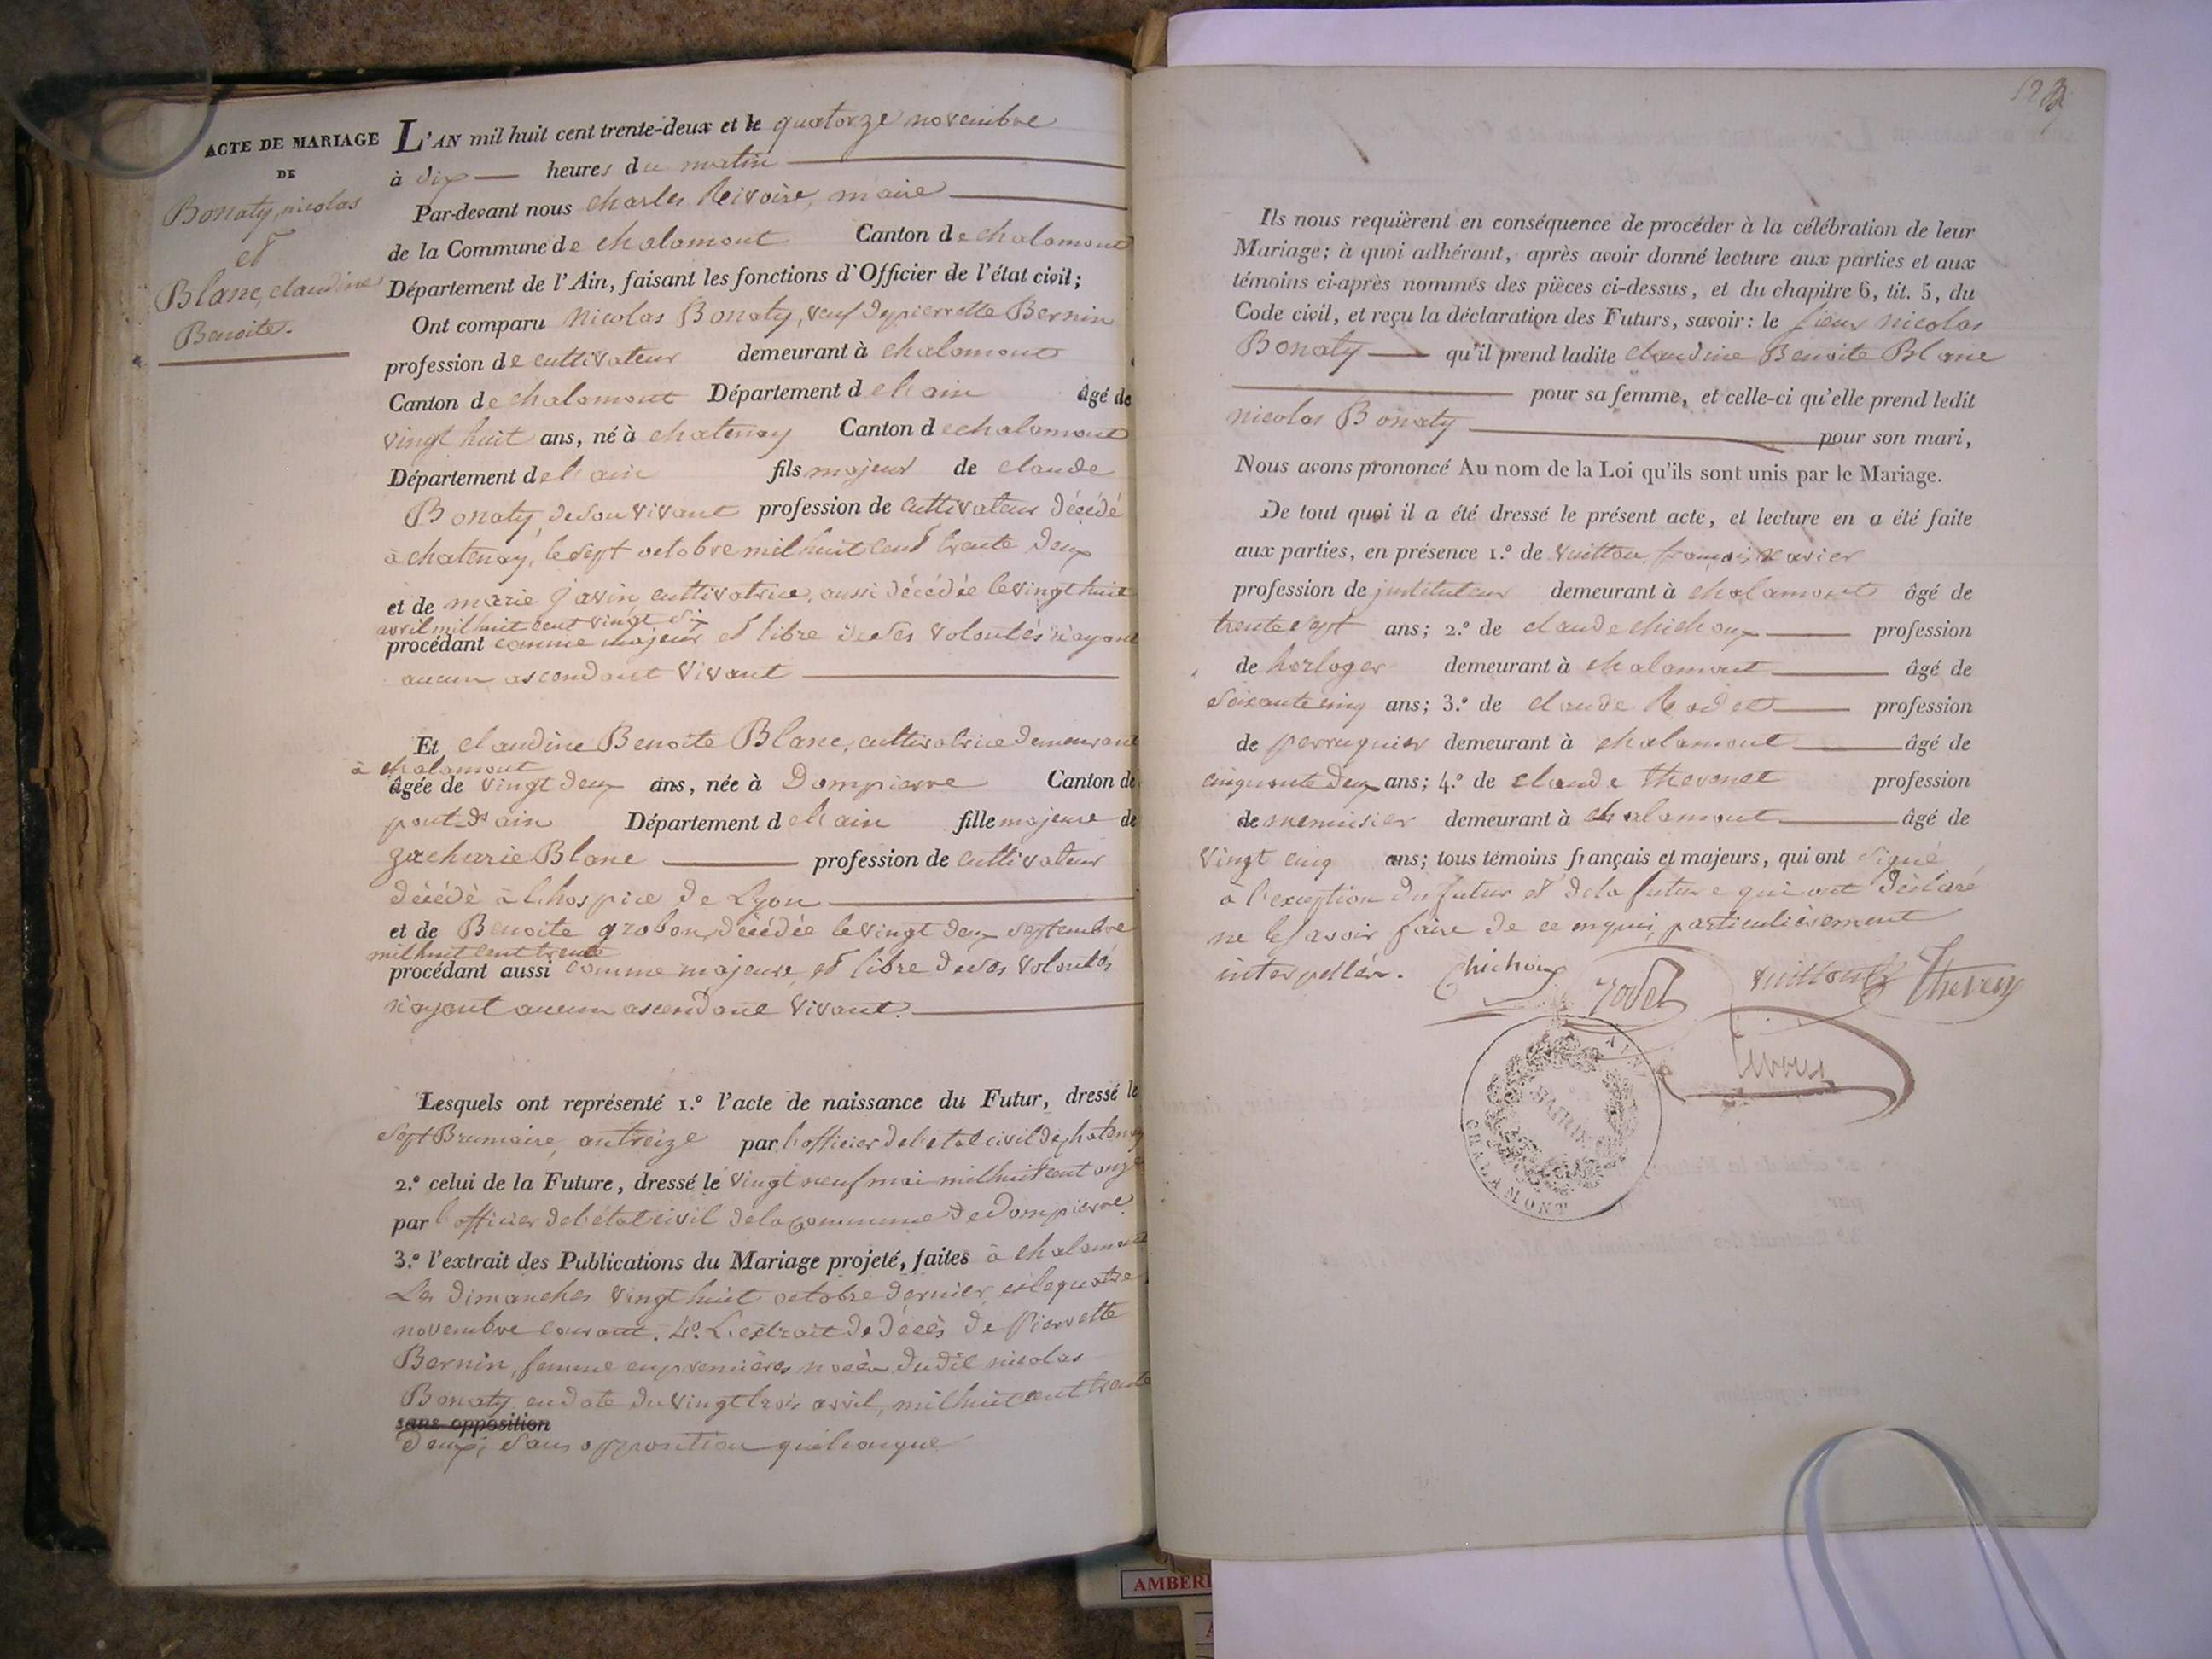 ACTE DE MARIAGE
DE
Bonaty, nicolas
et
Blanc, claudine
Benoite.
L'AN mil huit cent trente-deux et le quatorze novembre
à dix heures du matin
Par-devant nous charles Rivoire, maire
de la Commune de chalamont Canton de chalamont
Département de l'Ain, faisant les fonctions d'Officier de l'état civil;
Ont comparu Nicolas Bonaty, veuf de pierrette Bernin
profession de cultivateur demeurant à chalamont
Canton de chalamont Département de l'ain âgé de
vingt huit ans, né à chatenay Canton de chalamont
Département de l'ain fils majeur de claude
Bonaty, de son vivant profession de cultivateur décédé
à chatenay, le sept octobre mil huit cent trente deux
et de marie javin cultivatrice, aussi décédée le vingt huit
avril mil huit cent vingt six
procédant comme majeur et libre de ses volontés n'ayant
aucun ascendant vivant
Et claudine Benoite Blanc, cultivatrice demeurant
à chalamont
âgée de vingt deux ans, née à Dompierre Canton de
pont-d'ain Département de l'ain fille majeure de
zacharie Blanc profession de cultivateur
décédé à l'hospice de Lyon
et de Benoite grobon, décédée le vingt deux septembre
mil huit cent trente
procédant aussi comme majeure et libre de ses volontés
n'ayant aucun ascendant vivant.
Lesquels ont représenté 1.º l'acte de naissance du Futur, dressé le
sept Brumaire, an treize par l'officier de l'état civil de chatenay
2.º celui de la Future, dressé le vingt neuf mai mil huit cent onze
par l'officier de l'état civil de la commune de Dompierre.
3.º l'extrait des Publications du Mariage projeté, faites à chalamont
Les dimanches vingt huit octobre dernier et le quatre
novembre courant. 4º. L'extrait de décès de Pierrette
Bernin, femme en premières noces dudit nicolas
Bonaty en date du vingt trois avril, mil huit cent trente
sans opposition
deux, sans opposition quelconque
Ils nous requièrent en conséquence de procéder à la célébration de leur
Mariage; à quoi adhérant, après avoir donné lecture aux parties et aux
témoins ci-après nommés des pièces ci-dessus, et du chapitre 6, tit. 5, du
Code civil, et reçu la déclaration des Futurs, savoir: le sieur nicolas
Bonaty qu'il prend ladite claudine Benoite Blanc
pour sa femme, et celle-ci qu'elle prend ledit
nicolas Bonaty pour son mari,
Nous avons prononcé Au nom de la Loi qu'ils sont unis par le Mariage.
De tout quoi il a été dressé le présent acte, et lecture en a été faite
aux parties, en présence 1.º de vuitton françois xavier
profession de instituteur demeurant à chalamont âgé de
trente sept ans; 2.º de claude chichoux profession
de horloger demeurant à chalamont âgé de
soixante cinq ans; 3.º de claude Rodet profession
de perruquier demeurant à chalamont âgé de
cinquante deux ans; 4.º de claude thevenet profession
de menuisier demeurant à chalamont âgé de
vingt cinq ans; tous témoins français et majeurs, qui ont signé
à l'exception du futur et de la future qui ont déclaré
ne le savoir faire de ce enquis, particulièrement
interpellés. Chichoux rodet vuitton thevenet
MAIRIE
CHALAMONT
AIN
AMBERI